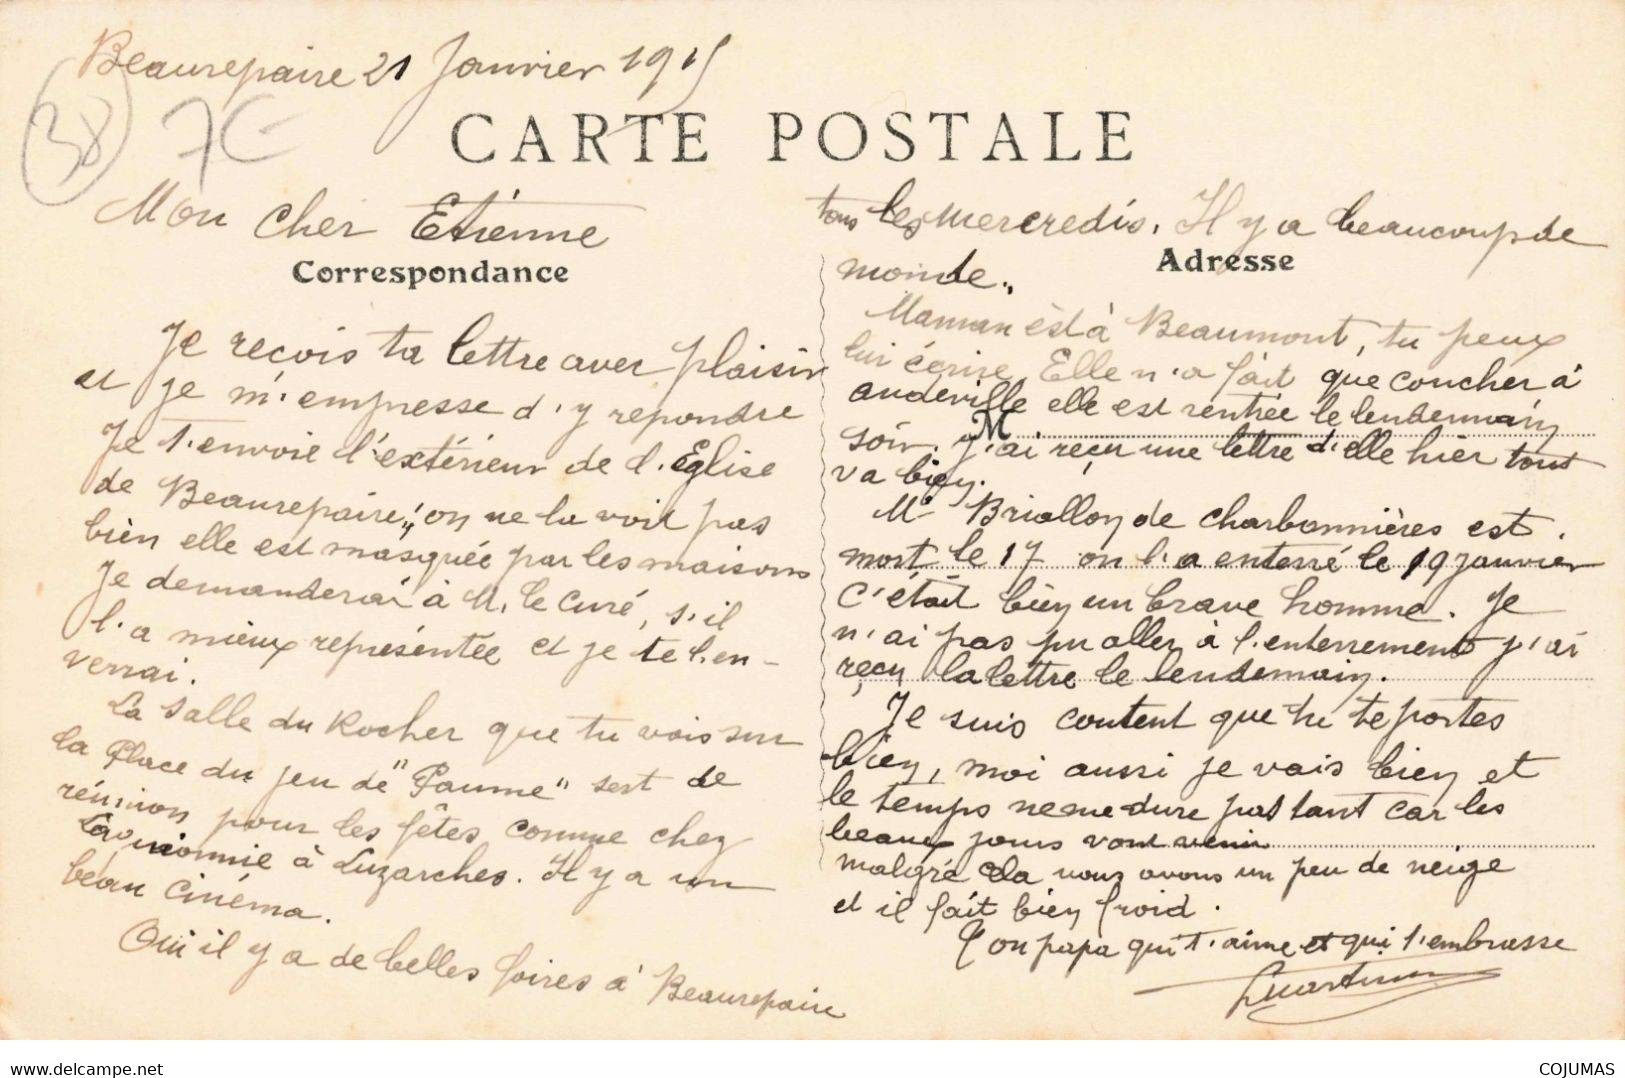 Beaurepaire 21 Janvier 1915
38
7€
CARTE POSTALE
Mon cher Etienne
Correspondance
Je reçois ta lettre avec plaisir
et je m'empresse d'y repondre
Je t'envoie l'extérieur de l'Eglise
de Beaurepaire, on ne la voit pas
bien elle est masquée par les maisons
Je demanderai à M. le Curé, s'il
l'a mieux représentée et je te l'en-
verrai.
La Salle du Rocher que tu vois sur
la Place du jeu de "Paume" sert de
réunion pour les fêtes comme chez
à Luzarches. Il y a un
beau cinéma.
Oui il y a de belles foires à Beaurepaire
tous les mercredis. Il y a beaucoup de
Adresse
monde.
Maman est à Beaumont, tu peux
lui écrire. Elle n'a fait que coucher à
andeville elle est rentrée le lendemain
M
soir. j'ai reçu une lettre d'elle hier tout
va bien.
Mr Briallon de Charbonnières est
mort le 17 on l'a enterré le 19 janvier
C'était bien un brave homme. Je
n'ai pas pu aller à l'enterrement j'ai
reçu la lettre le lendemain.
Je suis content que tu te portes
bien, moi aussi je vais bien et
le temps ne me dure pas tant car les
beaux jours vont venir
malgré cela nous avons un peu de neige
et il fait bien froid.
Ton papa qui t'aime et qui t'embrasse
COJUMAS
delcampe.net